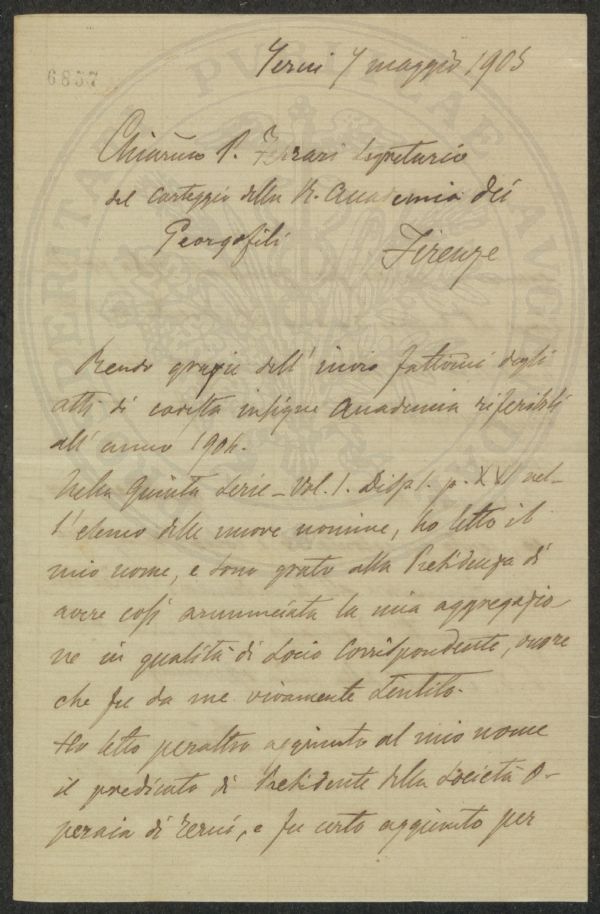 6857
Terni 7 maggio 1905
Chiar.mo P. Ferrari Segretario
del carteggio della R. Accademia dei
Georgofili
Firenze
Rendo grazie dell' invio fattomi degli
atti di codesta insigne Accademia riferibili
all' anno 1904.
Nella Quinta Serie - Vol. 1. Disp. 1. p. XVI nel-
l'elenco delle nuove nomine, ho letto il
mio nome, e sono grato alla Presidenza di
avere così annunciata la mia aggregazio
ne in qualità di Socio Corrispondente, onore
che fu da me vivamente sentito.
Ho letto peraltro aggiunto al mio nome
il predicato di Presidente della Società O-
peraia di Terni, e fu certo aggiunto per